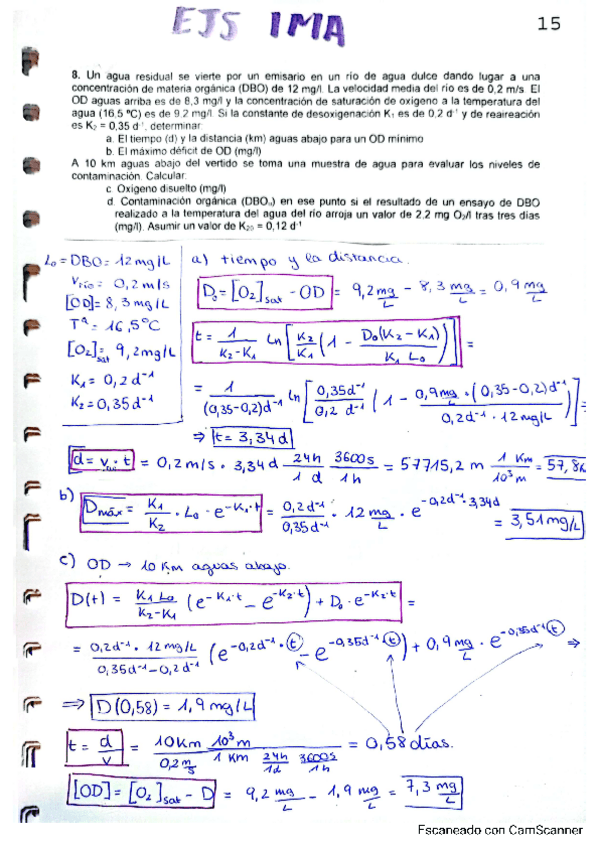 EJS IMA
15
8. Un agua residual se vierte por un emisario en un río de agua dulce dando lugar a una
concentración de materia orgánica (DBO) de 12 mg/l. La velocidad media del río es de 0,2 m/s. El
OD aguas arriba es de 8,3 mg/l y la concentración de saturación de oxigeno a la temperatura del
agua (16,5 ºC) es de 9.2 mg/l. Si la constante de desoxigenación K₁ es de 0,2 d⁻¹ y de reaireación
es K₂ = 0,35 d⁻¹, determinar:
a. El tiempo (d) y la distancia (km) aguas abajo para un OD mínimo
b. El máximo déficit de OD (mg/l)
A 10 km aguas abajo del vertido se toma una muestra de agua para evaluar los niveles de
contaminación. Calcular:
c. Oxigeno disuelto (mg/l)
d. Contaminación orgánica (DBOᵤ) en ese punto si el resultado de un ensayo de DBO
realizado a la temperatura del agua del río arroja un valor de 2.2 mg O₂/l tras tres días
(mg/l). Asumir un valor de K₂₀ = 0,12 d⁻¹
L₀ = DBO = 12 mg/L
V río = 0,2 m/s
[OD] = 8,3 mg/L
Tª = 16,5ºC
[O₂]sat = 9,2 mg/L
K₁ = 0,2 d⁻¹
K₂ = 0,35 d⁻¹
a) tiempo y la distancia.
D₀ = [O₂]sat - OD = 9,2 mg/L - 8,3 mg/L = 0,9 mg/L
t = 1/(K₂-K₁) ln[K₂/K₁ (1 - D₀(K₂-K₁)/(K₁ L₀))] =
= 1/((0,35-0,2)d⁻¹) ln[0,35d⁻¹/0,2 d⁻¹ (1 - 0,9 mg/L · (0,35-0,2)d⁻¹/(0,2d⁻¹ · 12 mg/L))] =
⇒ t = 3,34 d
d = v · t = 0,2 m/s · 3,34 d 24h/1 d 3600s/1h = 57715,2 m 1 Km/10³ m = 57,8
b) Dmáx = K₁/K₂ · L₀ · e^-K₁·t = 0,2d⁻¹/0,35d⁻¹ · 12 mg/L · e^-0,2d⁻¹·3,34d = 3,51 mg/L
c) OD → 10 Km aguas abajo.
D(t) = K₁ L₀/(K₂-K₁) (e^-K₁·t - e^-K₂·t) + D₀ · e^-K₂·t =
= 0,2d⁻¹ · 12 mg/L/(0,35d⁻¹-0,2d⁻¹) (e^-0,2d⁻¹·t - e^-0,35d⁻¹·t) + 0,9 mg/L · e^-0,35d⁻¹·t ⇒
⇒ D(0,58) = 1,9 mg/L
t = d/v = 10 Km/0,2 m/s 10³ m/1 Km 24h/1d 3600s/1h = 0,58 días.
[OD] = [O₂]sat - D = 9,2 mg/L - 1,9 mg/L = 7,3 mg/L
Escaneado con CamScanner